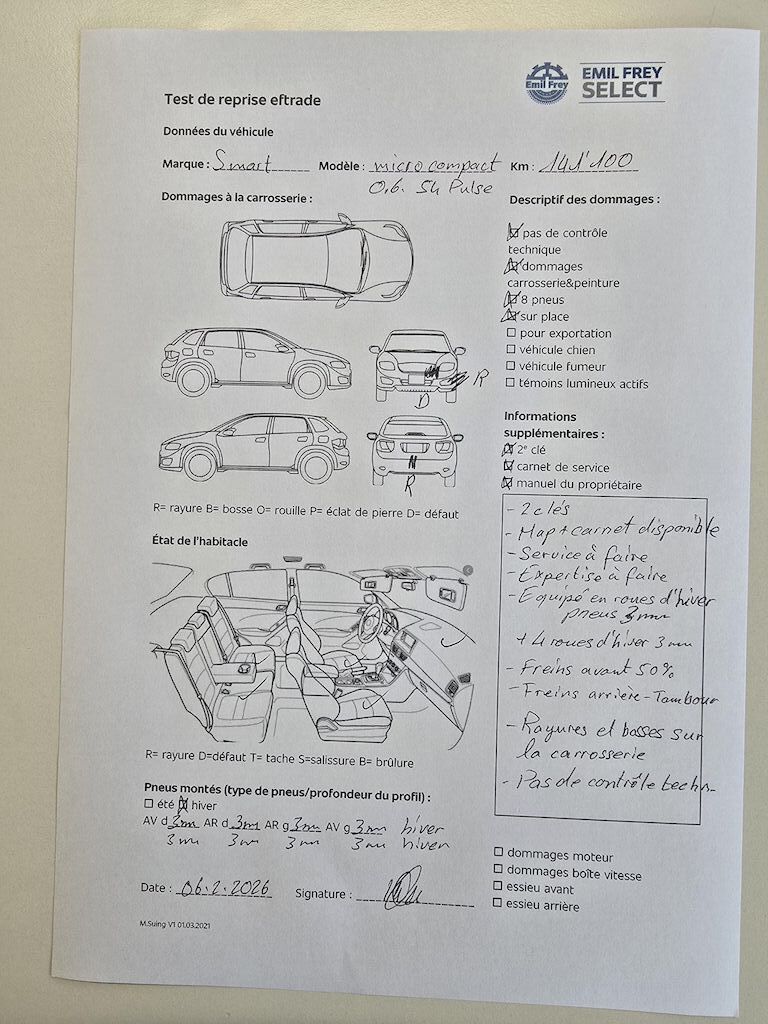 Emil Frey
EMIL FREY
SELECT
Test de reprise eftrade
Données du véhicule
Marque : Smart Modèle : micro compact Km : 141'100
0.6. S4 Pulse
Dommages à la carrosserie :
Descriptif des dommages :
pas de contrôle
technique
dommages
carrosserie&peinture
8 pneus
sur place
pour exportation
véhicule chien
véhicule fumeur
témoins lumineux actifs
R
D
R
R= rayure B= bosse O= rouille P= éclat de pierre D= défaut
Informations
supplémentaires :
2e clé
carnet de service
manuel du propriétaire
- 2 clés
- Map + carnet disponible
- Service à faire
- Expertise à faire
- Equipé en roues d'hiver
pneus 3mm
+ 4 roues d'hiver 3 mm
- Freins avant 50%
- Freins arrière - Tambour
- Rayures et bosses sur
la carrosserie
- Pas de contrôle techn-
État de l'habitacle
R= rayure D=défaut T= tache S=salissure B= brûlure
Pneus montés (type de pneus/profondeur du profil) :
été hiver
AV d 3mm AR d 3mm AR g 3mm AV g 3mm hiver
3mm 3mm 3mm 3mm hiver
Date : 06.2.2026 Signature :
dommages moteur
dommages boîte vitesse
essieu avant
essieu arrière
M.Suing V1 01.03.2021